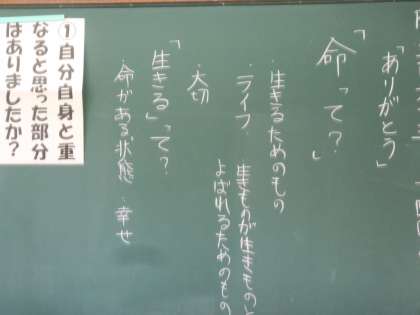 「ありがとう」
「命って?」
・生きるためのもの
・ライフ　生きものが生きものと
よばれるためのもの
・大切
「生きる」って?
・命がある状態・幸せ
①自分自身と重
なると思った部分
はありましたか?